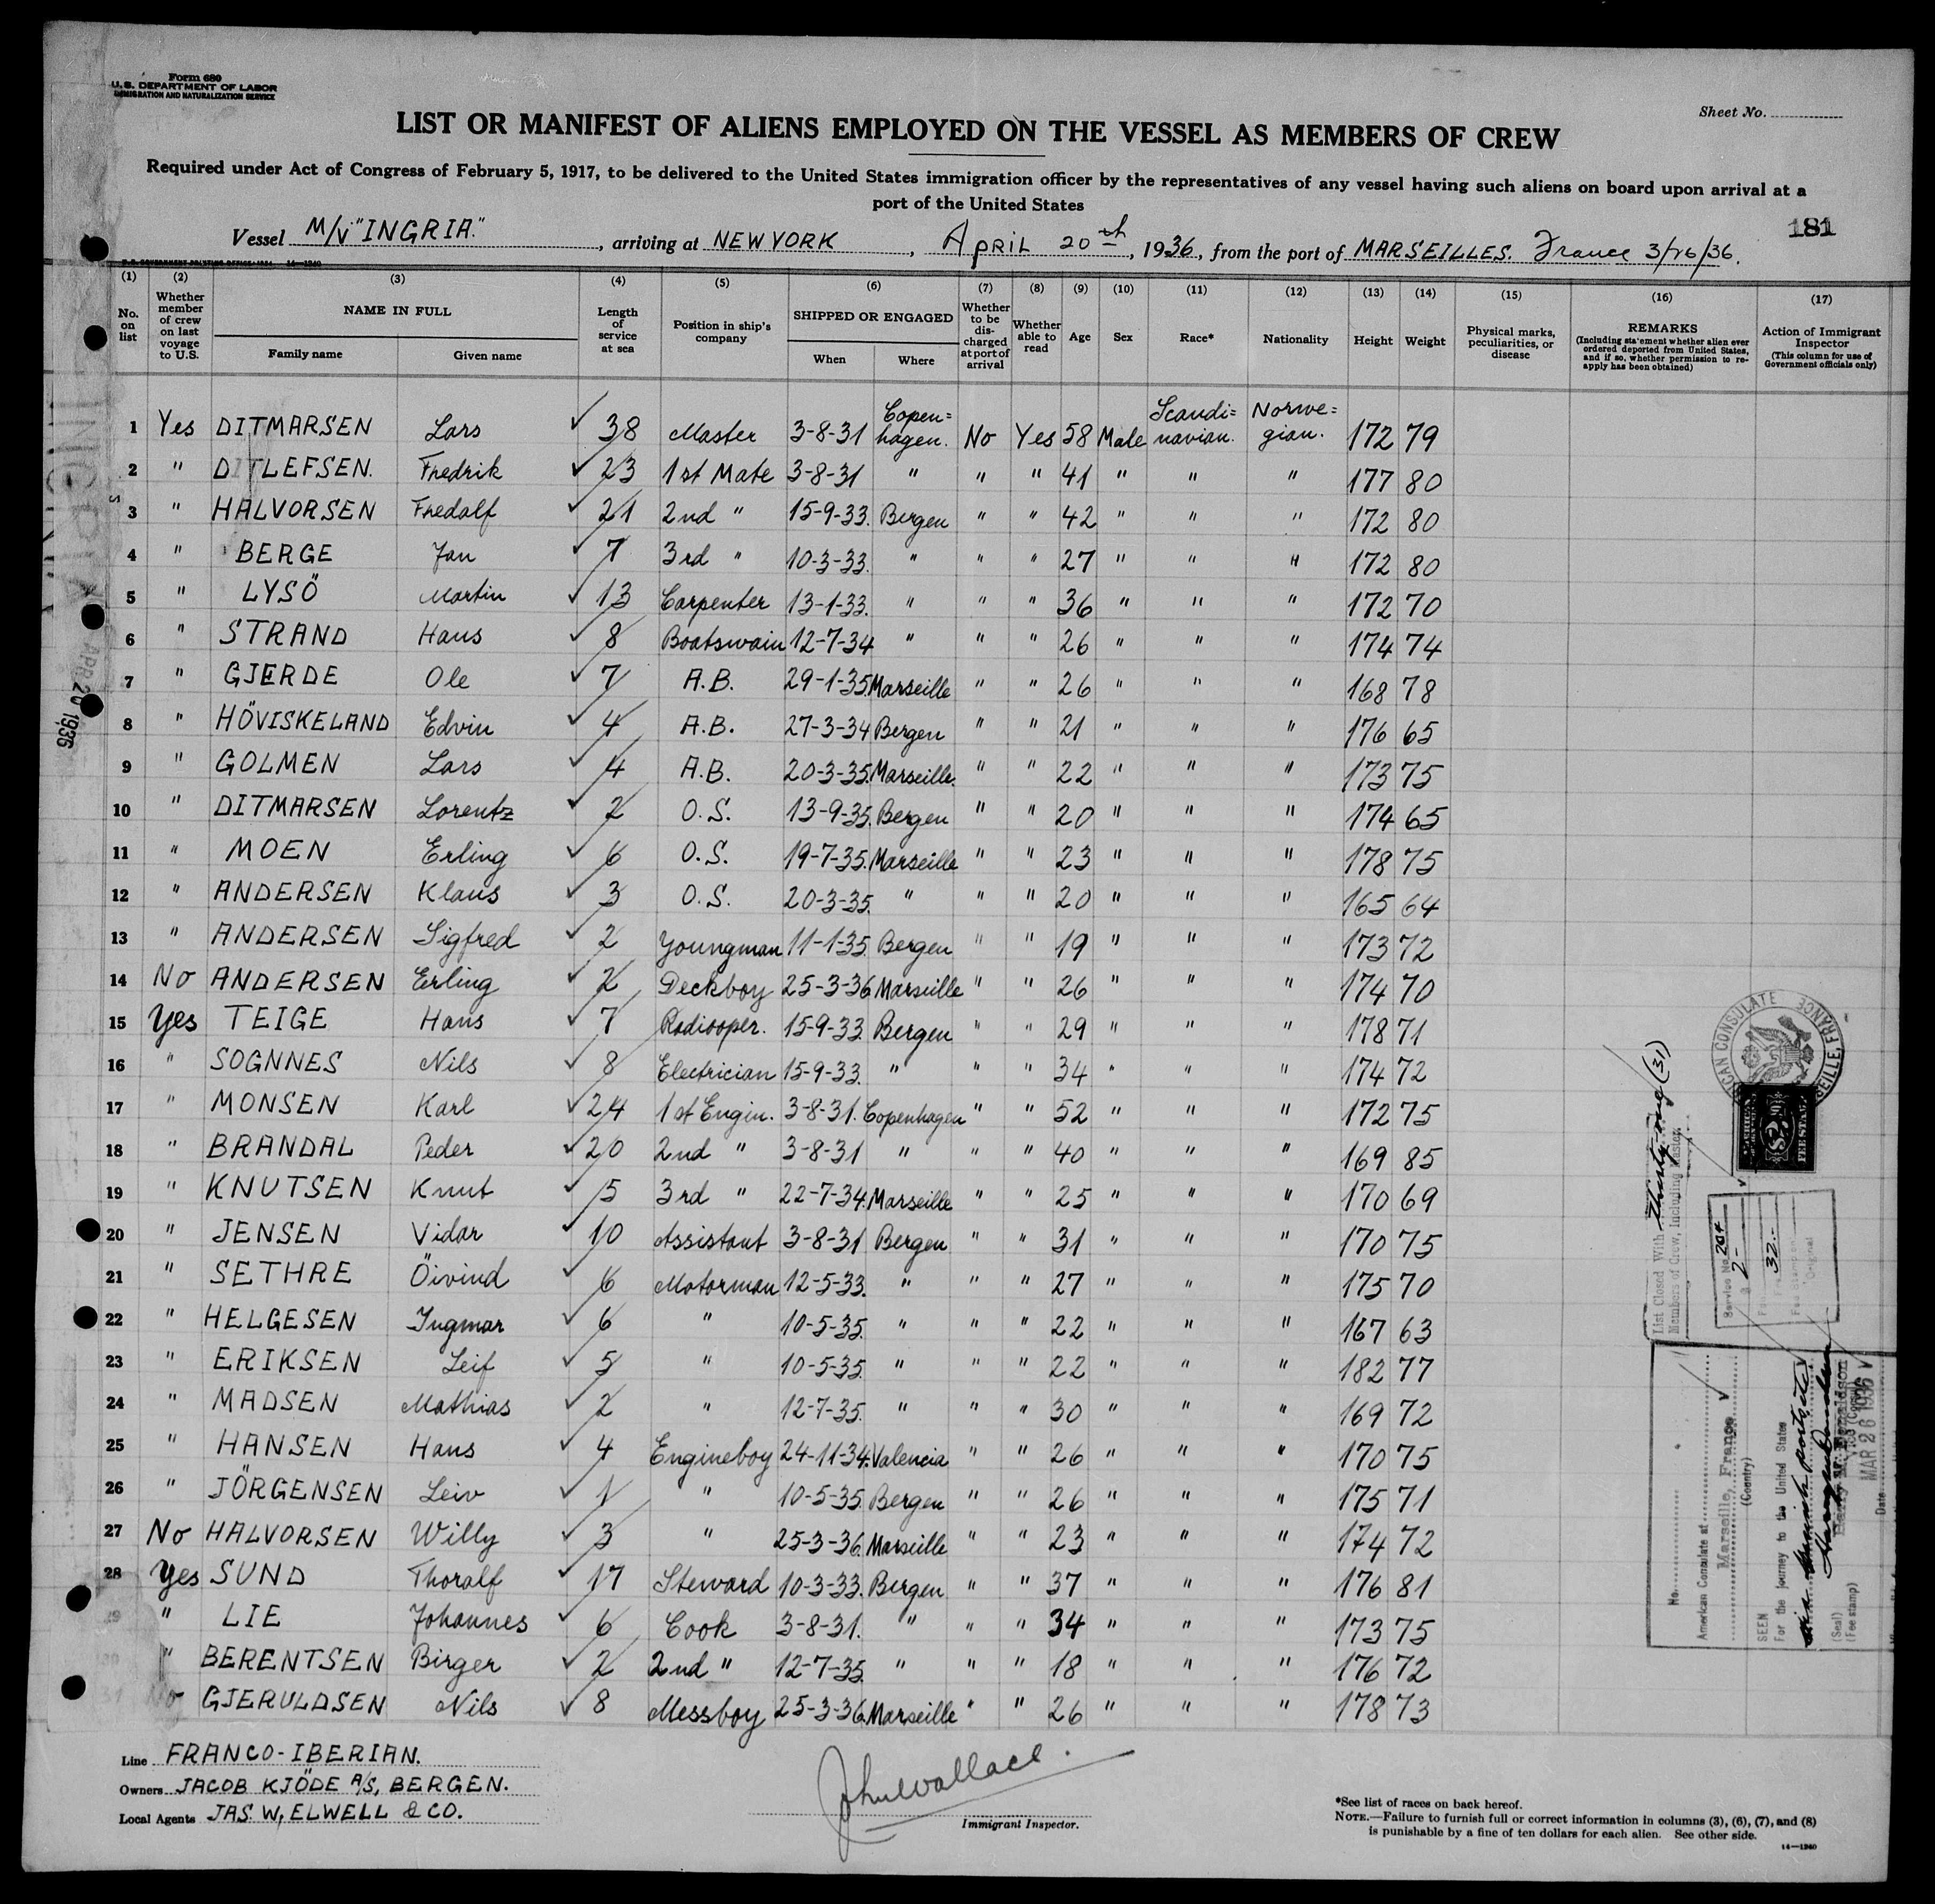 Form 680
U.S. DEPARTMENT OF LABOR
IMMIGRATION AND NATURALIZATION SERVICE
Sheet No.
LIST OR MANIFEST OF ALIENS EMPLOYED ON THE VESSEL AS MEMBERS OF CREW
Required under Act of Congress of February 5, 1917, to be delivered to the United States immigration officer by the representatives of any vessel having such aliens on board upon arrival at a
port of the United States
181
Vessel M/V "INGRIA.", arriving at NEW YORK, APRIL 20th, 1936, from the port of MARSEILLES. France 3/26/36.
(1) (2) (3) (4) (5) (6) (7) (8) (9) (10) (11) (12) (13) (14) (15) (16) (17)
No. on list
Whether member of crew on last voyage to U.S.
NAME IN FULL
Family name
Given name
Length of service at sea
Position in ship's company
SHIPPED OR ENGAGED
When
Where
Whether to be discharged at port of arrival
Whether able to read
Age
Sex
Race*
Nationality
Height
Weight
Physical marks, peculiarities, or disease
REMARKS
(Including statement whether alien ever ordered deported from United States, and if so, whether permission to reapply has been obtained)
Action of Immigrant Inspector
(This column for use of Government officials only)
1 Yes DITMARSEN Lars ✓ 38 Master 3-8-31 Copen=hagen. No Yes 58 Male Scandi=navian. Norwe=gian. 172 79
2 " DITLEFSEN. Fredrik ✓ 23 1st Mate 3-8-31 " " " 41 " " " 177 80
3 " HALVORSEN Fredolf ✓ 21 2nd " 15-9-33. Bergen " " 42 " " " 172 80
4 " BERGE Jan ✓ 7 3rd " 10-3-33. " " " 27 " " " 172 80
5 " LYSÖ Martin ✓ 13 Carpenter 13-1-33. " " " 36 " " " 172 70
6 " STRAND Hans ✓ 8 Boatswain 12-7-34 " " " 26 " " " 174 74
7 " GJERDE Ole ✓ 7 A.B. 29-1-35 Marseille " " 26 " " " 168 78
8 " HÖVISKELAND Edvin ✓ 4 A.B. 27-3-34 Bergen " " 21 " " " 176 65
9 " GOLMEN Lars ✓ 4 A.B. 20-3-35. Marseille. " " 22 " " " 173 75
10 " DITMARSEN Lorentz ✓ 2 O.S. 13-9-35. Bergen " " 20 " " " 174 65
11 " MOEN Erling ✓ 6 O.S. 19-7-35. Marseille " " 23 " " " 178 75
12 " ANDERSEN Klaus ✓ 3 O.S. 20-3-35. " " " 20 " " " 165 64
13 " ANDERSEN Sigfred ✓ 2 Youngman 11-1-35. Bergen " " 19 " " " 173 72
14 No ANDERSEN Erling ✓ 2 Deckboy 25-3-36 Marseille " " 26 " " " 174 70
15 Yes TEIGE Hans ✓ 7 Radiooper. 15-9-33. Bergen " " 29 " " " 178 71
16 " SOGNNES Nils ✓ 8 Electrician 15-9-33. " " " 34 " " " 174 72
17 " MONSEN Karl ✓ 24 1st Engin. 3-8-31. Copenhagen " " 52 " " " 172 75
18 " BRANDAL Peder ✓ 20 2nd " 3-8-31 " " " 40 " " " 169 85
19 " KNUTSEN Knut ✓ 5 3rd " 22-7-34. Marseille " " 25 " " " 170 69
20 " JENSEN Vidar ✓ 10 Assistant 3-8-31 Bergen " " 31 " " " 170 75
21 " SETHRE Öivind ✓ 6 Motorman 12-5-33. " " " 27 " " " 175 70
22 " HELGESEN Ingmar ✓ 6 " 10-5-35. " " " 22 " " " 167 63
23 " ERIKSEN Leif ✓ 5 " 10-5-35. " " " 22 " " " 182 77
24 " MADSEN Mathias ✓ 2 " 12-7-35. " " " 30 " " " 169 72
25 " HANSEN Hans ✓ 4 Engineboy 24-11-34. Valencia " " 26 " " " 170 75
26 " JÖRGENSEN Leiv ✓ 1 " 10-5-35. Bergen " " 26 " " " 175 71
27 No HALVORSEN Willy ✓ 3 " 25-3-36. Marseille " " 23 " " " 174 72
28 Yes SUND Thoralf ✓ 17 Steward 10-3-33. Bergen " " 37 " " " 176 81
29 " LIE Johannes ✓ 6 Cook 3-8-31. " " " 34 " " " 173 75
30 " BERENTSEN Birger ✓ 2 2nd " 12-7-35. " " " 18 " " " 176 72
31 No GJERULDSEN Nils ✓ 8 Messboy 25-3-36. Marseille " " 26 " " " 178 73
INGRIA
APR 20 1936
AMERICAN CONSULATE MARSEILLE, FRANCE
AMERICAN
$2
FEE STAMP
List Closed With Thirty-one (31)
Members of Crew, Including Master.
Service No. 204
2-
32.-
Original
No.
American Consulate at
Marseille, France
(Country)
SEEN
For the journey to the United States
(Seal)
(Fee stamp)
MAR 26 1936
Date
Line FRANCO-IBERIAN.
Owners JACOB KJÖDE A/S, BERGEN.
Local Agents JAS. W. ELWELL & CO.
John Wallace.
Immigrant Inspector.
*See list of races on back hereof.
NOTE.—Failure to furnish full or correct information in columns (3), (6), (7), and (8)
is punishable by a fine of ten dollars for each alien. See other side.
14—1240